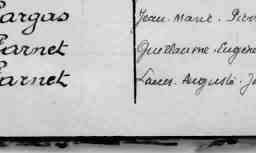 Cargas Jean Marie Pier
Carnet Guillaume Eugène
Carnet Louis Auguste J